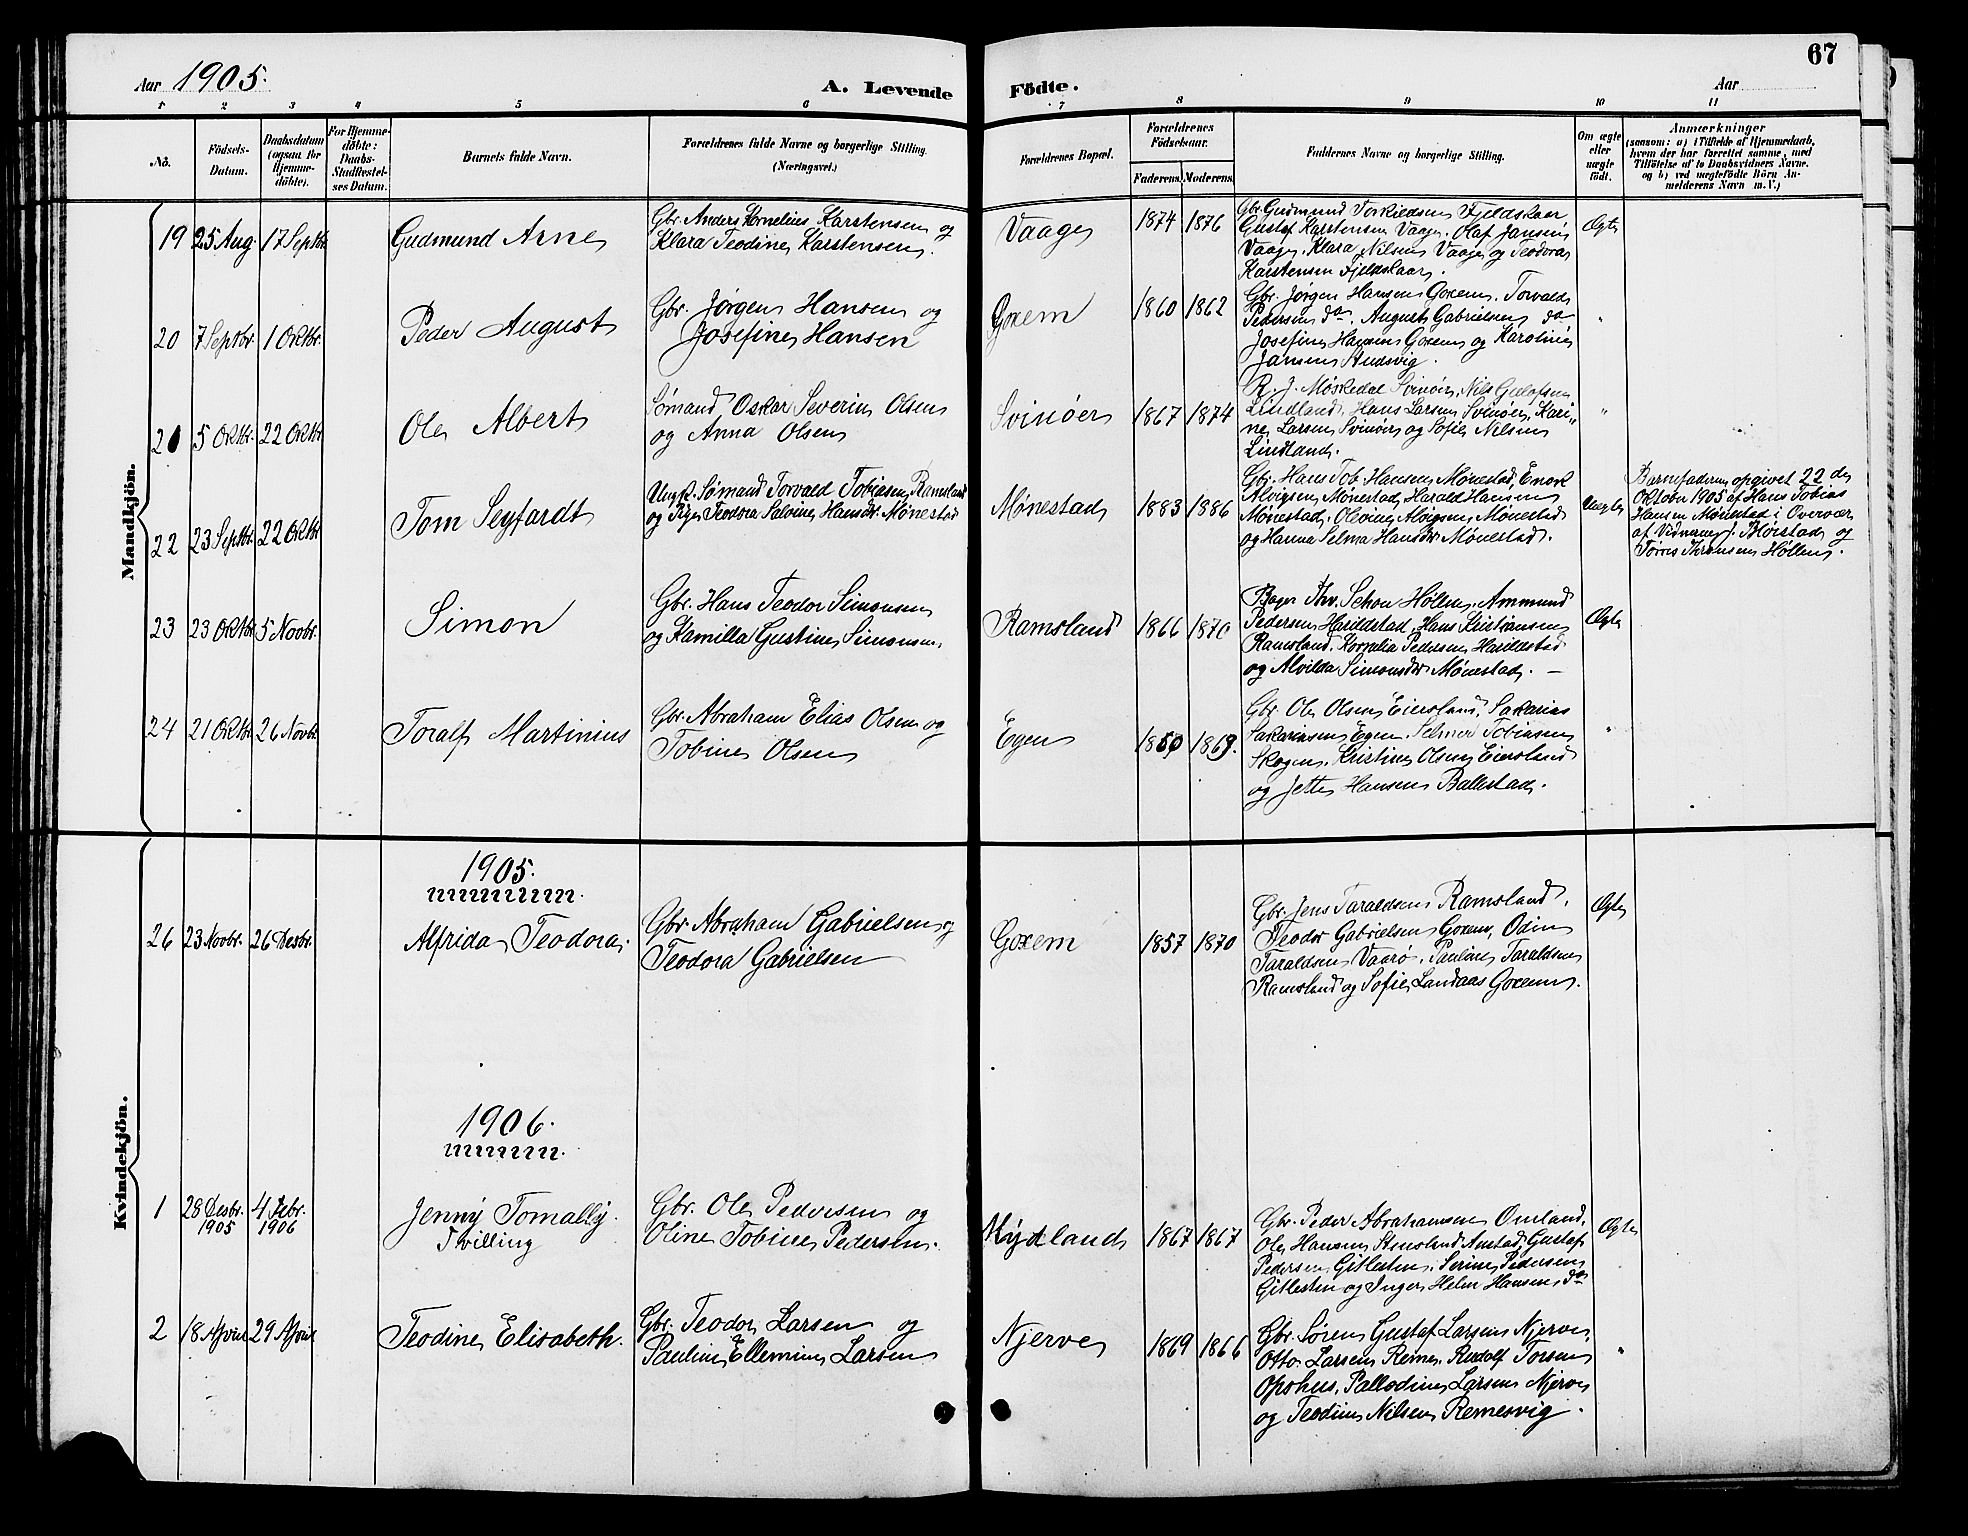 67
Aar 1905.
A. Levende Födte.
Aar
1 2 3 4 5 6 7 8 9 10 11
No.
Födsels-Datum.
Daabsdatum (ogsaa for Hjemme-döbte).
For Hjemme-döbte: Daabs-Stadfæstel-ses Datum.
Barnets fulde Navn.
Forældrenes fulde Navne og borgerlige Stilling. (Næringsvei.)
Forældrenes Bopæl.
Forældrenes Födselsaar.
Faderens. Moderens.
Faddernes Navne og borgerlige Stilling.
Om ægte eller uægte födt.
Anmærkninger
(saasom: a) i Tilfælde af Hjemmedaab,
hvem der har forrettet samme, med
Tilföielse af to Daabsvidners Navne,
og b) ved uægtefödte Börn An-
melderens Navn m.V.)
Mandkjön.
19 25 Aug. 17 Septbr Gudmund Arne
Gbr. Anders Kornelius Karstensen og
Klara Teodine Karstensen.
Vaage 1874 1876
Gbr. Gudmund Torkildsen Fjeldskaar
Gustaf Karstensen Vaage. Olaf Jansen
Vaage, Klara Nilsen Vaage og Teodora
Karstensen Fjeldskaar.
Ægte
20 7 Septbr. 1 Oktbr. Peder August
Gbr. Jörgen Hansen og
Josefine Hansen
Goxem 1860 1862
Gbr. Jörgen Hansen Goxem. Torvald
Pedersen do. August Gabrielsen do
Josefine Hansen Goxem og Karoline
Jansen Studsvig.
"
21 5 Oktbr. 22 Oktbr Ole Albert
Sömand Oskar Severin Olsen
og Anna Olsen
Svinöer 1867 1874
R. J. Möskedal Svinöer, Nils Gullofsen
Lindland, Hans Larsen Svinöer, Kari„
ne Larsen Svinöer og Sofie Nilsen
Lindland.
"
22 23 Septbr 22 Oktbr Tom Seyfardt
Ungk. Sömand Torvald Tobiasen Ramsland
og Pige Teodora Salvine Hansdr. Mönestad
Mönestad 1883 1886
Gbr. Hans Tob. Hansen Mönestad, Enok
Alvigsen Mönestad, Harald Hansen
Mönestad, Olevine Alvigsen Mönestad
og Hanna Selma Hansdr Mönestad.
Uægte
Barnefaderen opgivet 22 de
Oktober 1905 af Hans Tobias
Hansen Mönestad i Overvær
af Vidnerne J. Möistad og
Törres Thronsen Höllen.
23 23 Oktbr 5 Novbr. Simon
Gbr. Hans Teodor Simonsen
og Kamilla Gustine Simonsen.
Ramsland 1866 1870
Bager Thv. Schou Höllen, Ammund
Pedersen Harildstad, Hans Kristiansen
Ramsland. Kornelia Pedersen Harildstad
og Alvilda Simonsdr Mönestad. —
Ægte
24 21 Oktbr 26 Novbr. Toralf Martinius
Gbr. Abraham Elias Olsen og
Tobine Olsen
Egen 1850 1869.
Gbr. Ole Olsen Eiersland, Sakarias
Sakariasen Egen. Selmer Tobiasen
Skogen, Kristine Olsen Eiersland
og Jette Hansen Ballestad.
"
Kvindekjön.
1905.
26 23 Novbr. 26 Desbr. Alfrida Teodora.
Gbr. Abraham Gabrielsen og
Teodora Gabrielsen
Goxem 1857 1870
Gbr. Jens Taraldsen Ramsland,
Teodor Gabrielsen Goxem, Odin
Taraldsen Vaarö. Pauline Taraldsen
Ramsland og Sofie Landaas Goxem.
Ægte
1906.
1 28 Desbr. 1905 4 Febr. 1906 Jenny Tomally. Tvilling
Gbr. Ole Pedersen og
Oline Tobine Pedersen.
Mydland 1867 1867
Gbr. Peder Abrahamsen Omland,
Ole Hansen Stensland Austad, Gustaf
Pedersen Gitlesten. Serine Pedersen
Gitlesten og Inger Helen Hansen do
Ægte
2 18 April 29 April Teodine Elisabeth.
Gbr. Teodor Larsen og
Pauline Ellemine Larsen
Njerve 1869 1866
Gbr. Sören Gustaf Larsen Njerve
Otto Larsen Reme. Rudolf Torsen
Opshus, Palledine Larsen Njerve
og Teodine Nilsen Remesvig.
"